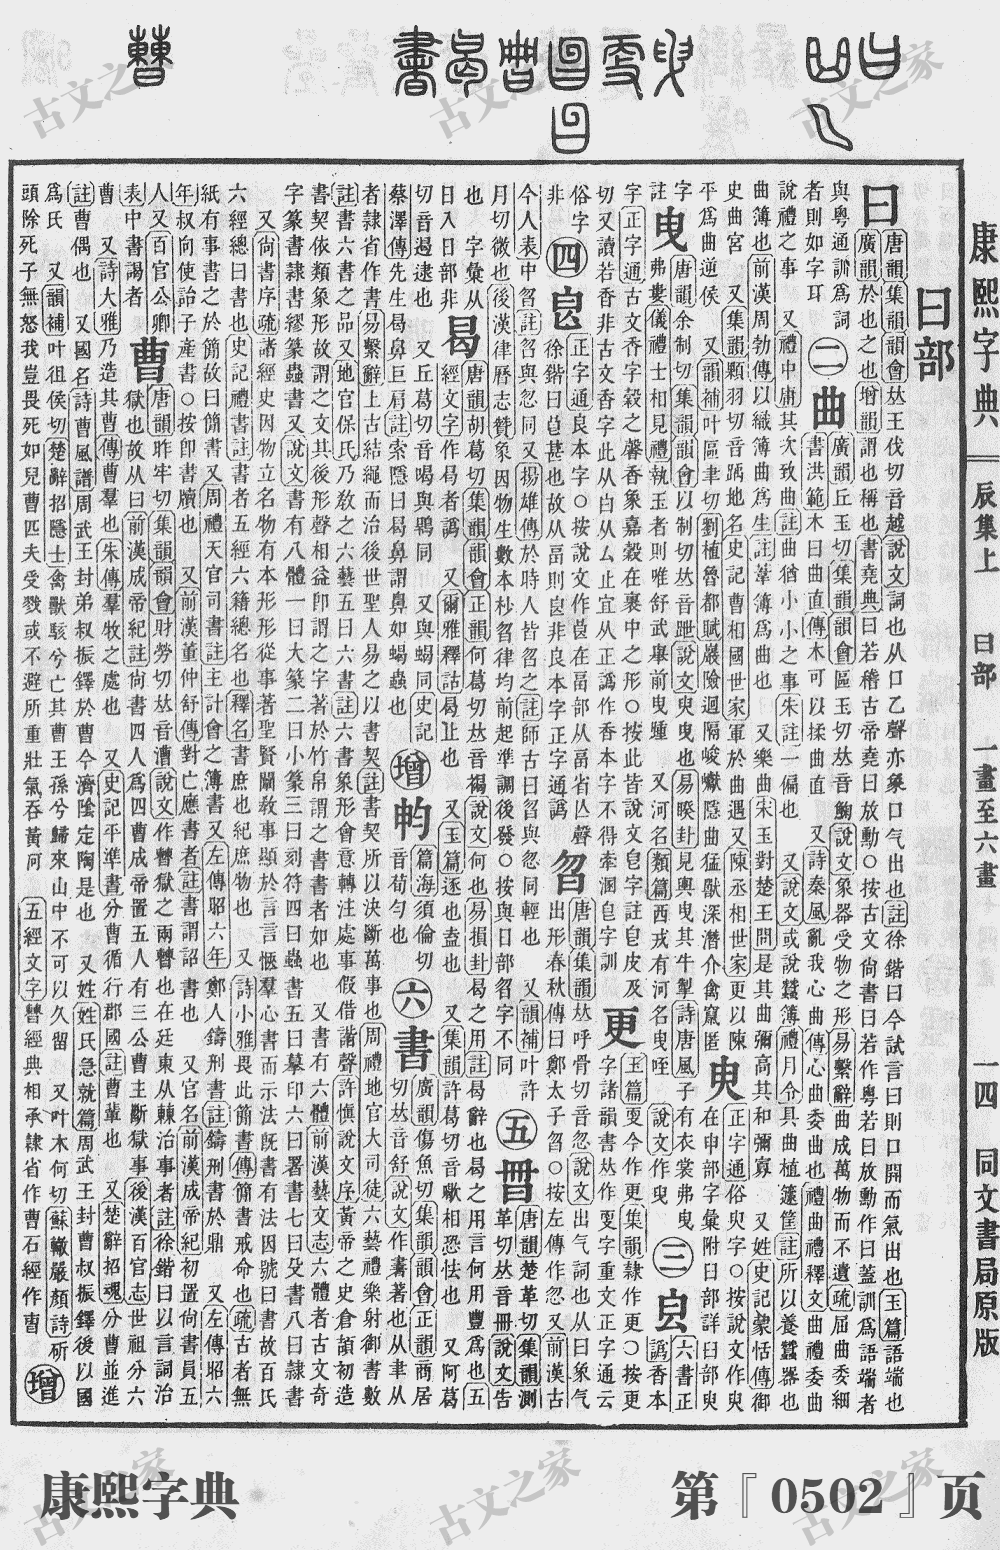 曰部
曰 唐韻集韻韻會𠀤王伐切音越說文詞也从口乙聲亦象口气出也註徐鍇曰今試言曰則口開而氣出也玉篇語端也
廣韻於也之也增韻謂也稱也書堯典曰若稽古帝堯曰放勳○按古文尚書曰若作粵若曰放勳作曰蓋訓爲語端者
與粵通訓爲詞 二 曲 廣韻丘玉切集韻韻會區玉切𠀤音說文象器受物之形易繫辭曲成萬物而不遺疏屈曲委細
者則如字耳 書洪範木曰曲直傳木可以揉曲直 又詩秦風亂我心曲傳心曲委曲也禮曲禮釋文曲禮委曲
說禮之事 又禮中庸其次致曲註曲猶小小之事朱註一偏也 又說文或說蠶簿禮月令具曲植籧筐註所以養蠶器也
曲簿也前漢周勃傳以織簿曲爲生註葦簿爲曲也 又樂曲宋玉對楚王問是其曲彌高其和彌寡 又姓史記蒙恬傳御
史曲宮 又集韻顆羽切音踽地名史記曹相國世家軍於曲遇又陳丞相世家更以陳 臾 正字通俗臾字○按說文作臾
平爲曲逆侯 又韻補叶區聿切劉植魯都賦巖險迴隔峻巘隱曲猛獸深潛介禽竄匿 在申部字彙附曰部詳臼部臾
字 曳 唐韻余制切集韻韻會以制切𠀤音跇說文臾曳也易睽卦見輿曳其牛掣詩唐風子有衣裳弗曳 三 六書正
註 弗婁儀禮士相見禮執玉者則唯舒武舉前曳踵 又河名類篇西戎有河名曳咥 說文作曳 譌香本
字正字通古文香字穀之馨香象嘉穀在裹中之形○按此皆說文皀字註皀皮及 更 玉篇㪅今作更集韻隸作更○按更
切又讀若香非古文香字此从白从厶止宜从正譌作香本字不得牽溷皀字訓 字諸韻書𠀤作㪅字重文正字通云
俗字 四 㫐 正字通良本字○按說文作㫐在畐部从畐省亾聲 曶 唐韻集韻𠀤呼骨切音忽說文出气詞也从曰象气
非 徐鍇曰㫐甚也故从畐則㫐非良本字正字通譌 出形春秋傳曰鄭太子曶○按左傳作忽又前漢古
今人表中曶註曶與忽同又揚雄傳於時人皆曶之註師古曰曶與忽同輕也 又韻補叶許 五 唐韻楚革切集韻測
月切微也後漢律曆志贊象因物生數本杪曶律均前起準調後發○按與日部曶字不同 革切𠀤音冊說文告
也 字彙从 曷 唐韻胡葛切集韻韻會正韻何葛切𠀤音褐說文何也易損卦曷之用註曷辭也曷之用言何用豐爲也五
曰入日部非 經文字作曷者譌 又爾雅釋詁曷止也 又玉篇逐也盍也 又集韻許葛切音歇相恐怯也 又阿葛
切音遏逮也 又丘葛切音喝與鶡同 又與蝎同史記 增 篇海須倫切 六 書 廣韻傷魚切集韻韻會正韻商居
蔡澤傳先生曷鼻巨肩註索隱曰曷鼻謂鼻如蝎蟲也 音荀勻也 切𠀤音舒說文作書著也从聿从
者隸省作書易繫辭上古結繩而治後世聖人易之以書契註書契所以決斷萬事也周禮地官大司徒六藝禮樂射御書數
註書六書之品又地官保氏乃敎之六藝五曰六書註六書象形會意轉注處事假借諧聲許愼說文序黃帝之史倉頡初造
書契依類象形故謂之文其後形聲相益卽謂之字著於竹帛謂之書書者如也 又書有六體前漢藝文志六體者古文奇
字篆書隸書繆篆蟲書又說文書有八體一曰大篆二曰小篆三曰刻符四曰蟲書五曰摹印六曰署書七曰殳書八曰隸書
又尚書序疏諸經史因物立名物有本形形從事著聖賢闡敎事顯於言言愜羣心書而示法旣書有法因號曰書故百氏
六經總曰書也史記禮書註書者五經六籍總名也釋名書庶也紀庶物也 又詩小雅畏此簡書傳簡書戒命也疏古者無
紙有事書之於簡故曰簡書又周禮天官司書註主計會之簿書又左傳昭六年鄭人鑄刑書註鑄刑書於鼎 又左傳昭六
年叔向使詒子產書○按卽書牘也 又前漢董仲舒傳對亡應書者註書謂詔書也 又官名前漢成帝紀初置尚書員五
人又百官公卿 曹 唐韻昨牢切集韻韻會財勞切𠀤音漕說文作㯥獄之兩㯥也在廷東从㯥治事者註徐鍇曰以言詞治
表中書謁者 獄也故从曰前漢成帝紀註尚書四人爲四曹成帝置五人有三公曹主斷獄事後漢百官志世祖分六
曹 又詩大雅乃造其曹傳曹羣也朱傳羣牧之處也 又史記平準書分曹循行郡國註曹輩也 又楚辭招魂分曹並進
註曹偶也 又國名詩曹風譜周武王封弟叔振鐸於曹今濟陰定陶是也 又姓姓氏急就篇周武王封曹叔振鐸後以國
爲氏 又韻補叶徂侯切楚辭招隱士禽獸駭兮亡其曹王孫兮歸來山中不可以久留 又叶木何切蘇轍嚴顏詩斫
頭除死子無怒我豈畏死如兒曹匹夫受戮或不避所重壯氣吞黃河 五經文字㯥經典相承隸省作曹石經作曺 增
康熙字典 辰集上 曰部 一畫至六畫 一四 同文書局原版
康熙字典
第『0502』页
古文之家
古文之家
古文之家
古文之家
古文之家
古文之家